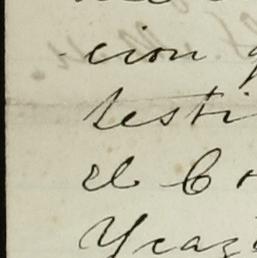 cion
testi
el Co
Yraz